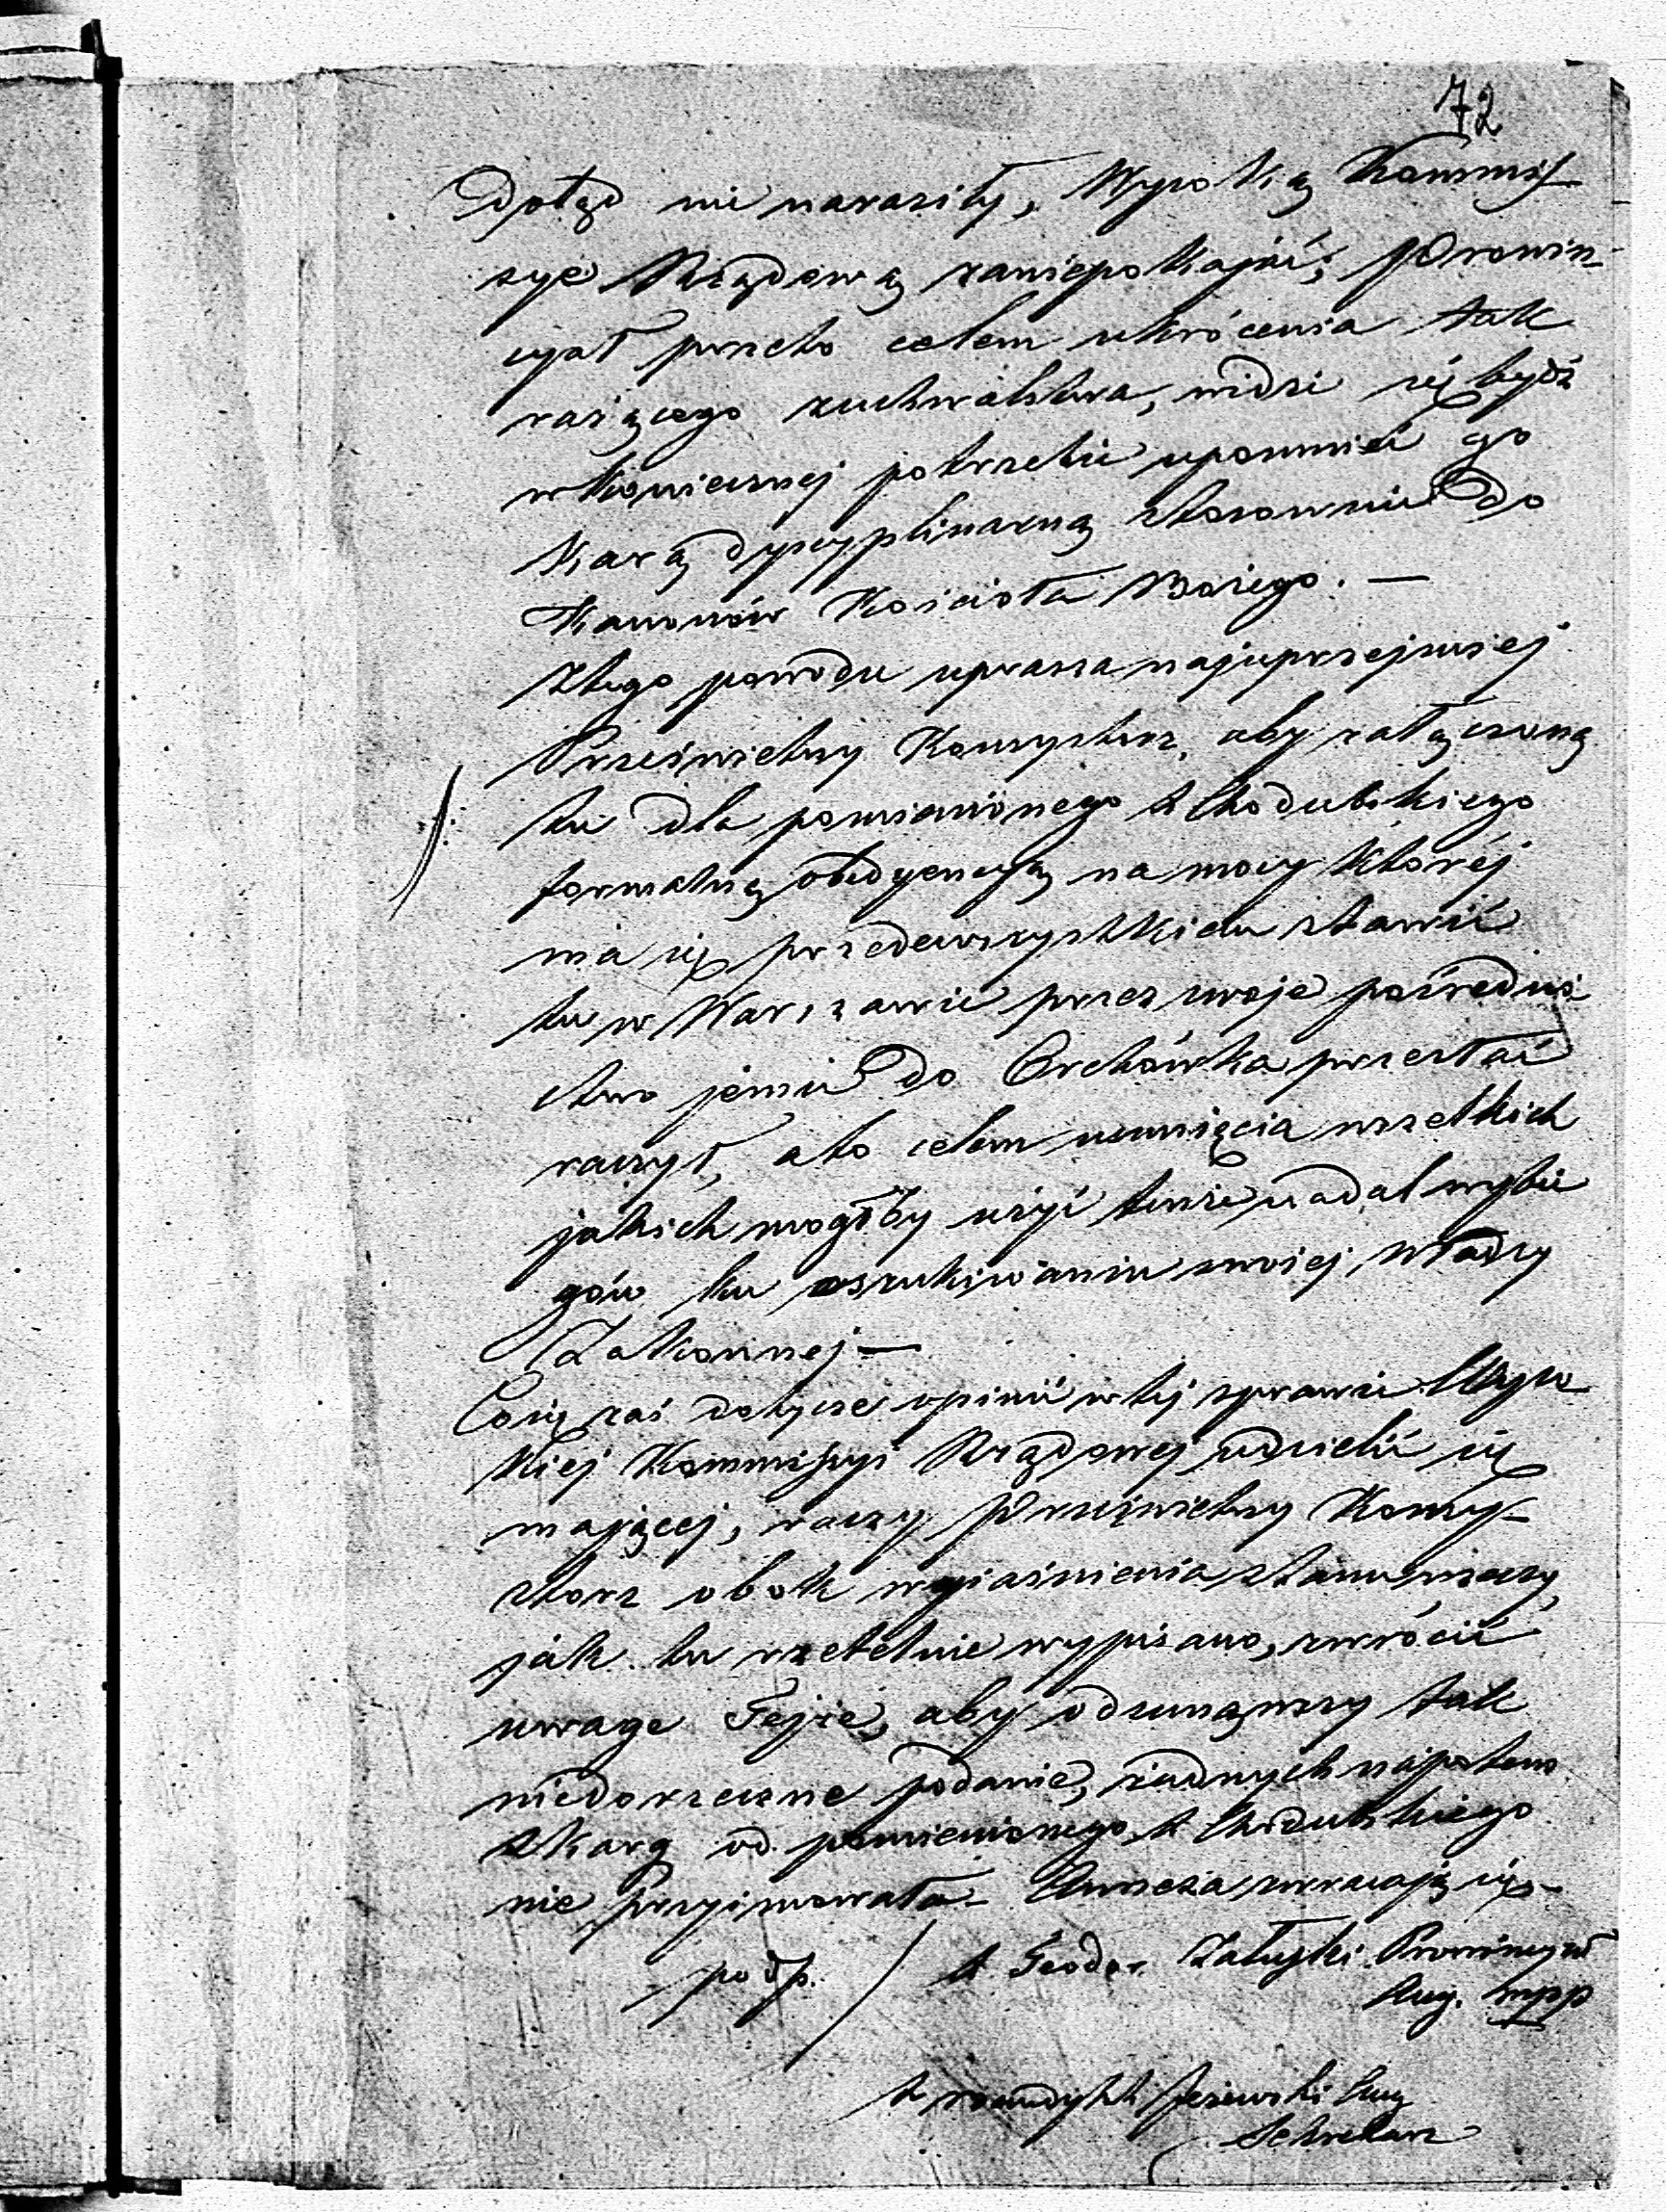 72
Dotąd nie naraziły, Wysoką Kommis-
syę Rządową zaniepokajać; Prowin-
cyał przeto celem ukrócenia tak
rażącego zuchwalstwa, widzi się bydź
w koniecznej potrzebie upomnieć go
karą dyscyplinarną stosownie do
Kanonów Kościoła Bożego. —
Z tego powodu uprasza najuprzejmiej
Prześwietny Konsystorz, aby załączoną
tu dla pomienionego X Chodubskiego
formalną obedyencyą na mocy którėj
ma się przedewszystkiem stawić
tu w Warszawie przez swoje pośredni-
ctwo jemu do Orchówka przesłać
raczył, a to celem usunięcia wszelkich
jakich mógłby użyć tenże nadal wybie
gów ku oszukiwaniu swojej władzy
Zakonnej —
Co się zaś dotycze opinii w tej sprawie Wyso
kiej Kommissyi Rządowej udzielić się
mającej, raczy Prześwietny Konsy-
storz obok wyjaśnienia stanu rzeczy,
jak tu rzetelnie wypisano, zwrócić
uwagę Tejże, aby odsunąwszy tak
niedorzeczne podanie, żadnych napotem
skarg od pomienionego X Chodubskiego
nie przyjmowała. Annexa zwracają się. -
podp. / X Teodor Załuski Prowincyał
Aug. mpp
X Jeżewski Aug
Sekretarz